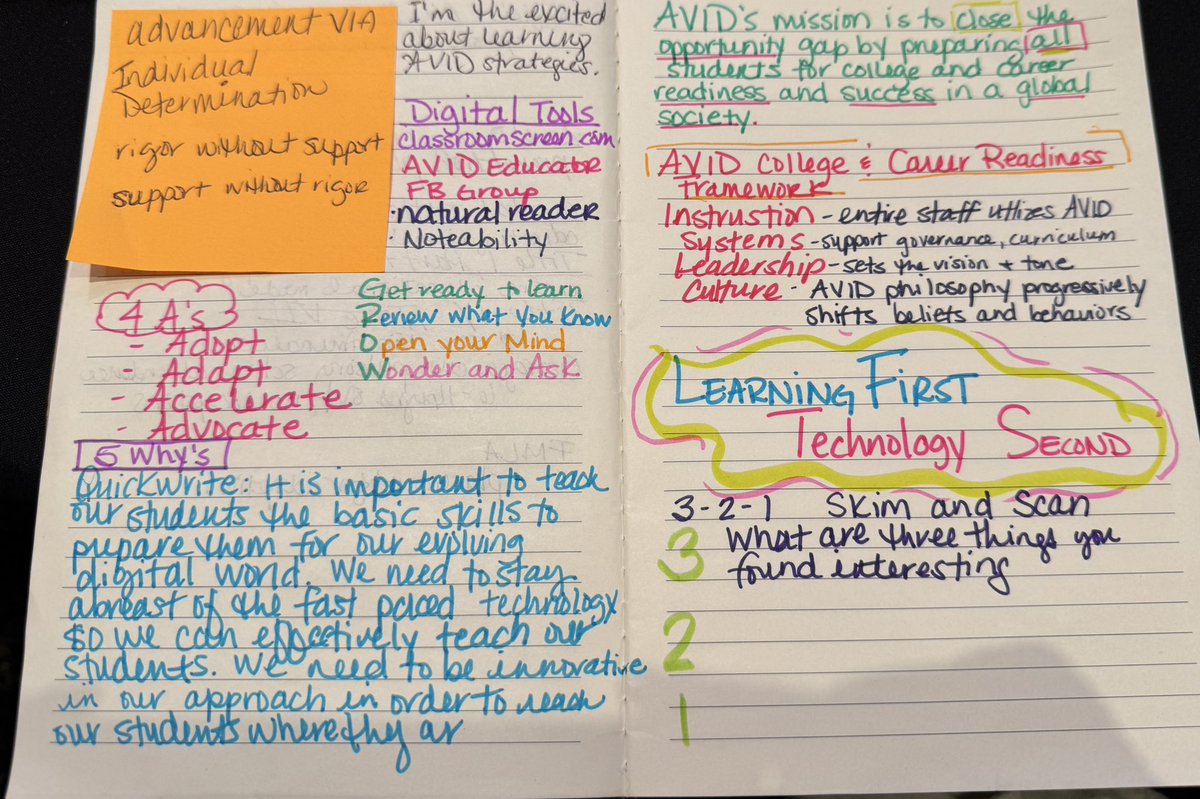 advancement VIA
Individual
Determination
rigor without support
support without rigor
I'm the excited
about learning
AVID strategies.
Digital Tools
classroomscreen.com
AVID Educator
FB Group
·natural reader
· Noteability
4 A's
- Adopt
- Adapt
- Accelerate
- Advocate
Get ready to learn
Review what you know
Open your Mind
Wonder and Ask
5 Why's
QuickWrite: It is important to teach
our students the basic skills to
prepare them for our evolving
digital world. We need to stay
abreast of the fast paced technology
so we can effectively teach our
students. We need to be innovative
in our approach in order to reach
our students where thy ar
AVID's mission is to close the
opportunity gap by preparing all
students for college and career
readiness and success in a global
society.
AVID College & Career Readiness
framework
Instrustion - entire staff utlizes AVID
Systems - support governance, curriculum
Leadership - sets the vision + tone
Culture - AVID philosophy progressively
shifts beliefs and behaviors
LEARNING FIRST
Technology SECOND
3-2-1 Skim and Scan
3 What are three things you
found interesting
2
1